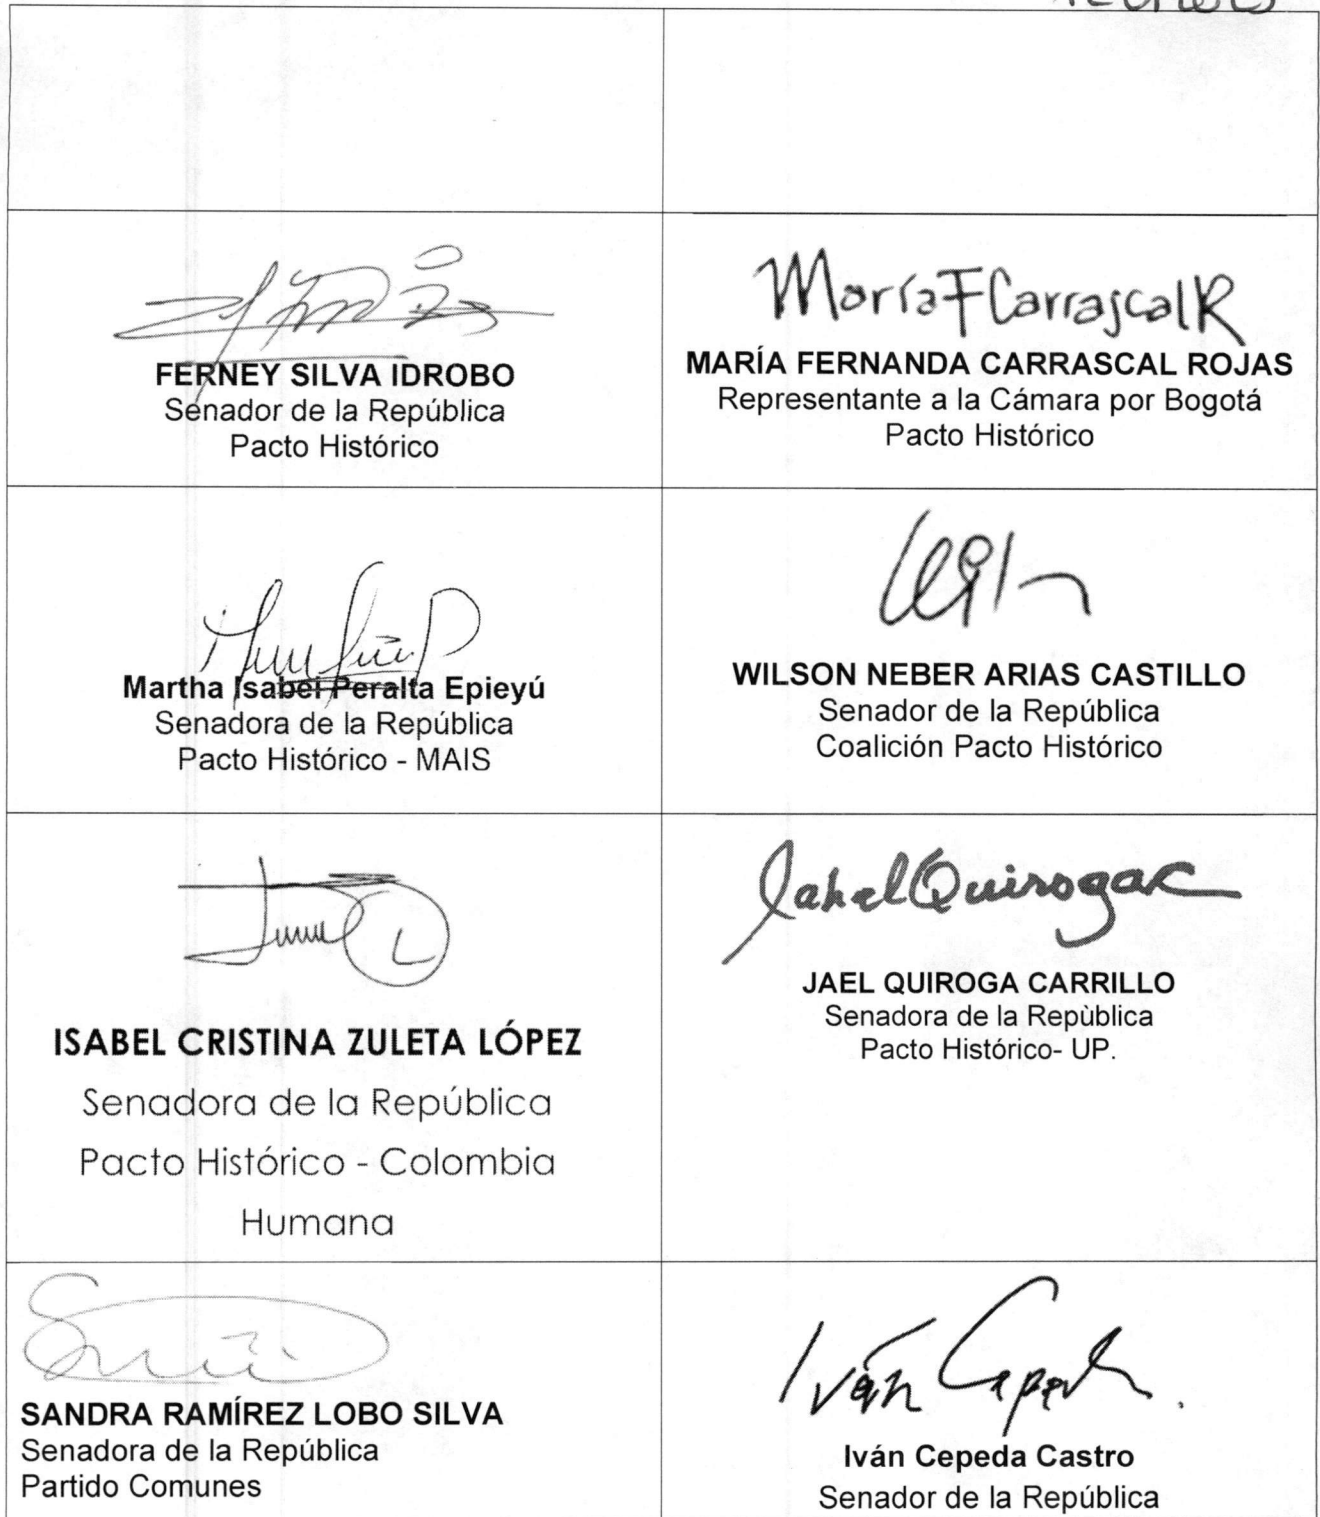 María F Carrascal R
FERNEY SILVA IDROBO
Senador de la República
Pacto Histórico
MARÍA FERNANDA CARRASCAL ROJAS
Representante a la Cámara por Bogotá
Pacto Histórico
Martha Isabel Peralta Epieyú
Senadora de la República
Pacto Histórico - MAIS
WILSON NEBER ARIAS CASTILLO
Senador de la República
Coalición Pacto Histórico
Jahel Quiroga C
ISABEL CRISTINA ZULETA LÓPEZ
Senadora de la República
Pacto Histórico - Colombia
Humana
JAEL QUIROGA CARRILLO
Senadora de la Repùblica
Pacto Histórico- UP.
SANDRA RAMÍREZ LOBO SILVA
Senadora de la República
Partido Comunes
Iván Cepeda
Iván Cepeda Castro
Senador de la República